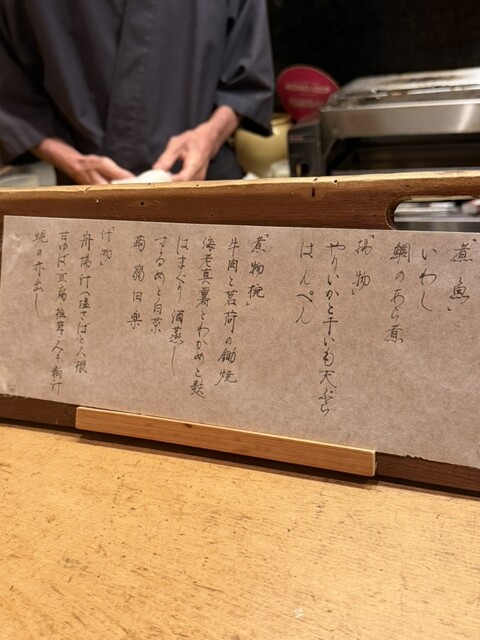 「煮魚」
いわし
鯛のあら煮
「揚物」
やりいかと干いも天ぷら
はんぺん
「煮物椀」
牛肉と茗荷の鋤焼
海老真薯とわかめと麩
はまぐり 酒蒸し
するめと白菜
蒟蒻田楽
「汁物」
船場汁 塩さばと大根
甘ゆば豆腐 椎茸 粕汁
蜆の赤出し